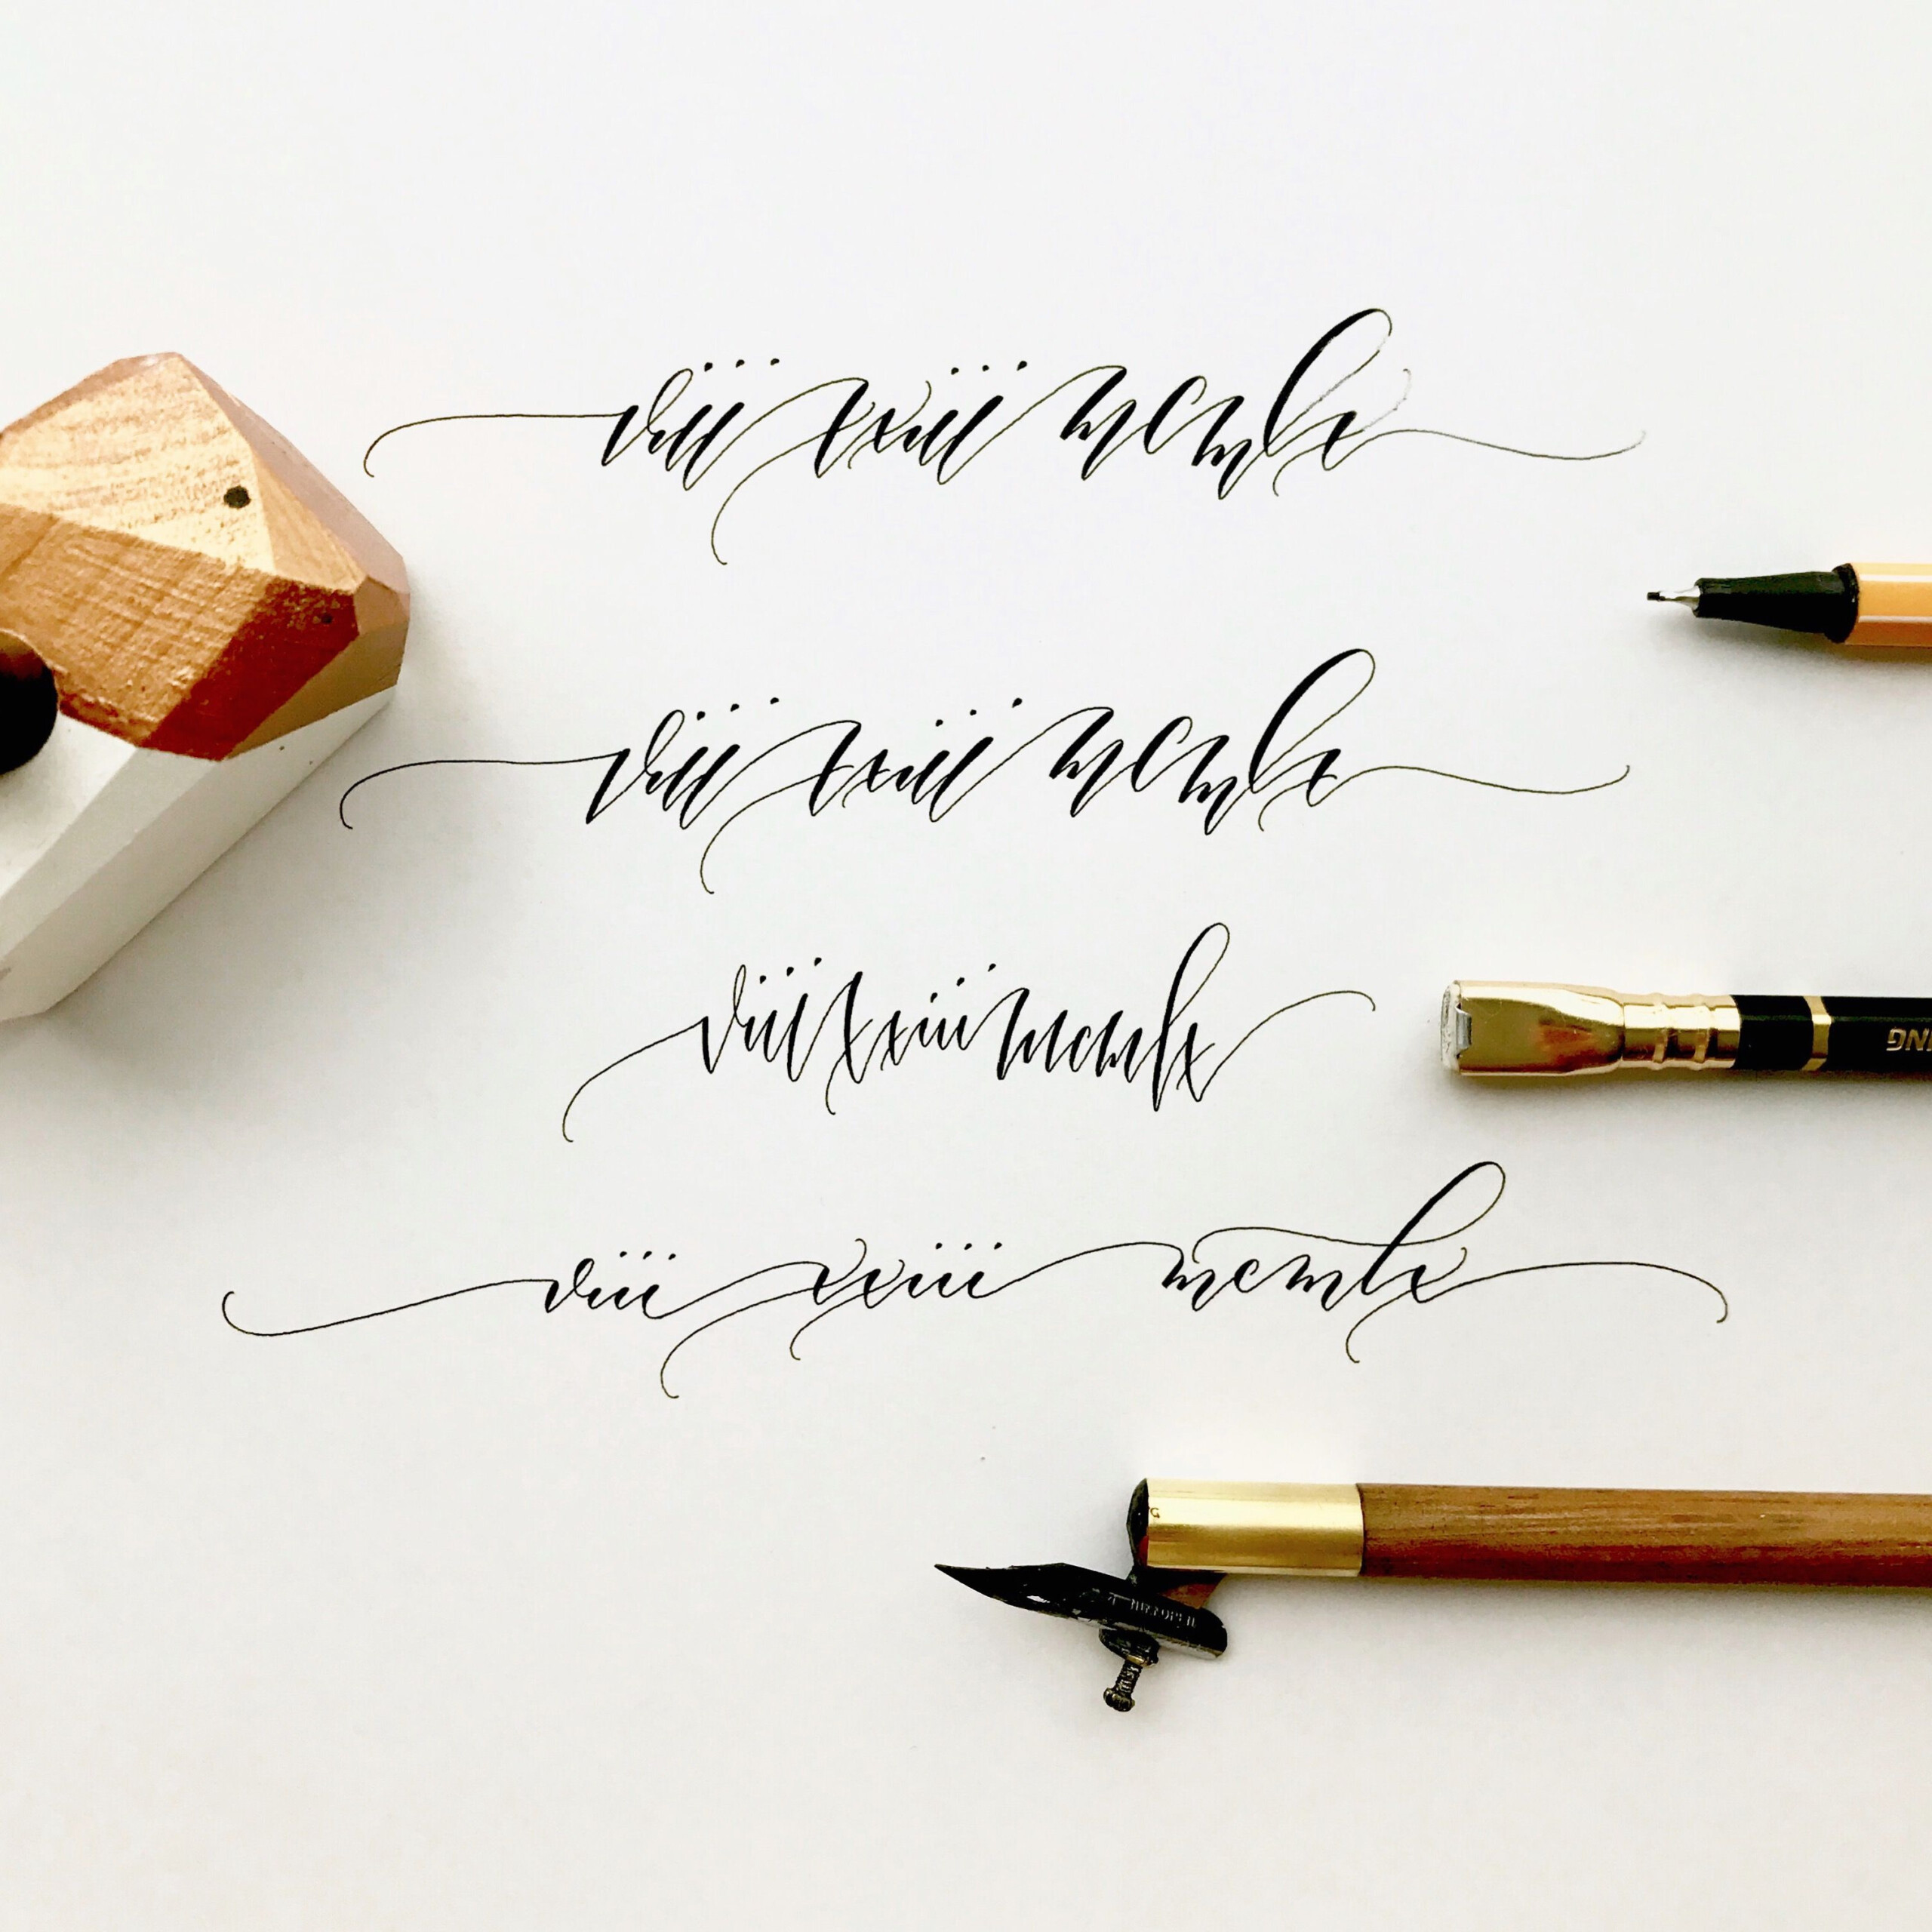 viii xxiii mcmlx
viii xxiii mcmlx
viii xxiii mcmlx
viii xxiii mcmlx